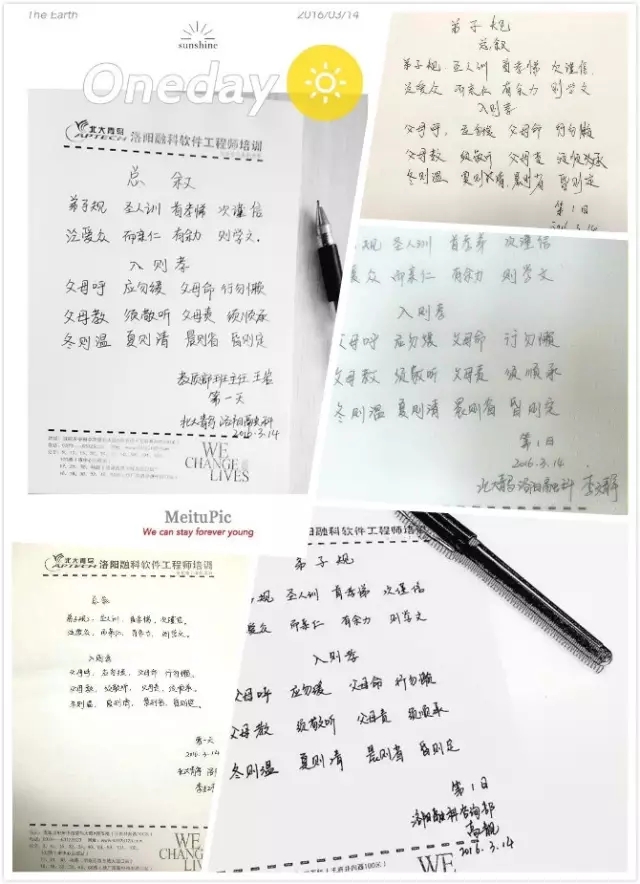 The Earth
2016/03/14
sunshine
Oneday
北大青鸟
APTECH 洛阳融科软件工程师培训
总叙
弟子规 圣人训 首孝悌 次谨信
泛爱众 而亲仁 有余力 则学文.
入则孝
父母呼 应勿缓 父母命 行勿懒
父母教 须敬听 父母责 须顺承
冬则温 夏则清 晨则省 昏则定
第一天
北大青鸟 洛阳融科
2016.3.14
WE
CHANGE
LIVES
弟子规
总叙
弟子规 圣人训 首孝悌 次谨信
泛爱众 而亲仁 有余力 则学文
入则孝
父母呼, 应勿缓 父母命 行勿懒
父母教 须敬听 父母责 须顺承
冬则温 夏则清, 晨则省 昏则定
第1日
2016.3.14
规 圣人训 首孝弟 次谨信
爱众 而亲仁 有余力 则学文
入则孝
父母呼 应勿缓 父母命 行勿懒
父母教 须敬听 父母责 须顺承
冬则温 夏则清 晨则省 昏则定
第1日
2016.3.14
北大青鸟洛阳融科
MeituPic
We can stay forever young
北大青鸟
APTECH 洛阳融科软件工程师培训
总叙
弟子规, 圣人训, 首孝悌, 次谨信.
泛爱众, 而亲仁, 有余力, 则学文.
入则孝
父母呼, 应勿缓, 父母命 行勿懒.
父母教, 须敬听, 父母责, 须顺承.
冬则温, 夏则清, 晨则省, 昏则定.
第一天
2016.3.14
北大青鸟 洛
WE
CHANGE
LIVES
阳融科软件工程师培
弟子规
规 圣人训 首孝悌 次谨信
爱众 而亲仁 有余力 则学文
入则孝
父母呼 应勿缓 父母命 行勿懒
父母教 须敬听 父母责 须顺承
冬则温 夏则清 晨则省 昏则定
第1日
洛阳融科咨询部
2016.3.14
WE